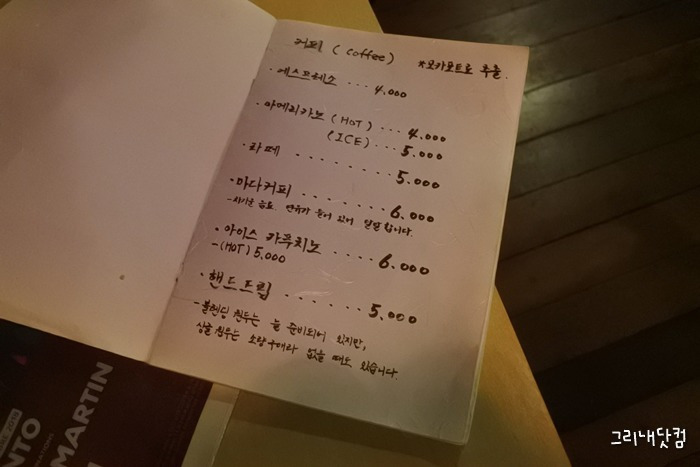 커피 ( Coffee) *모카포트로 추출.
· 에스프레소 ... 4,000
· 아메리카노 (HOT) ... 4,000
(ICE) ... 5,000
· 라떼 ...... 5,000
· 마다커피 ....... 6,000
연유가 들어 있어 달달합니다.
· 아이스 카푸치노 .... 6,000
-(HOT) 5,000
· 핸드드립 ...... 5,000
- 블렌딩 원두는 늘 준비되어 있지만,
싱글 원두는 소량구매라 없을 때도 있습니다.
NTO
MARTIN
그리내닷컴